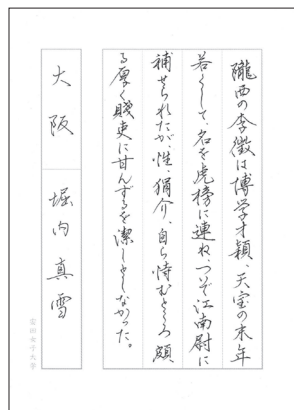 隴西の李徴は博学才穎、天宝の末年
若くして、名を虎榜に連ね、ついで江南尉に
補せられたが、性、狷介、自ら恃むところ頗
る厚く賤吏に甘んずるを潔しとしなかった。
大阪 堀内真雪